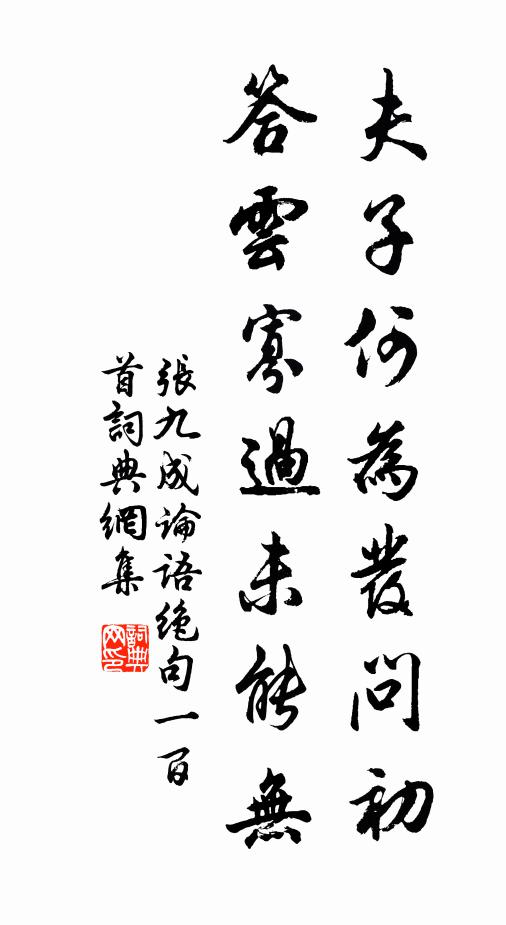 夫子何為發問初
答雲寡過未能無
張九成論語絶句一百
首詞典網集
詞典網印